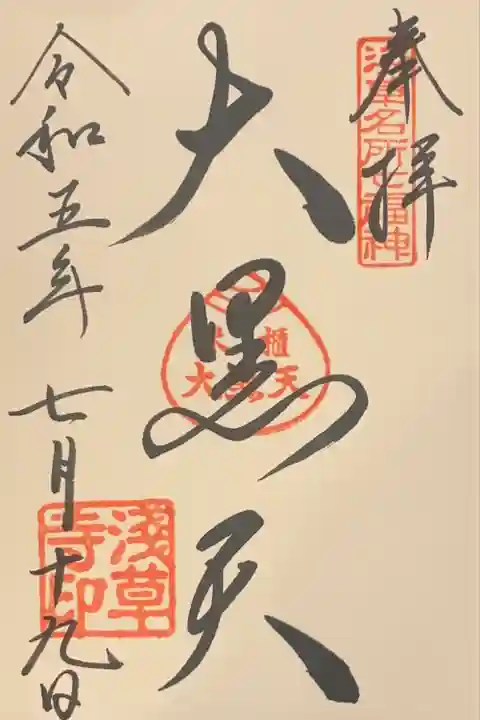 奉拝
浅草名所七福神
大黒天
米櫃
大黒天
令和五年 七月十九日
浅草
寺印